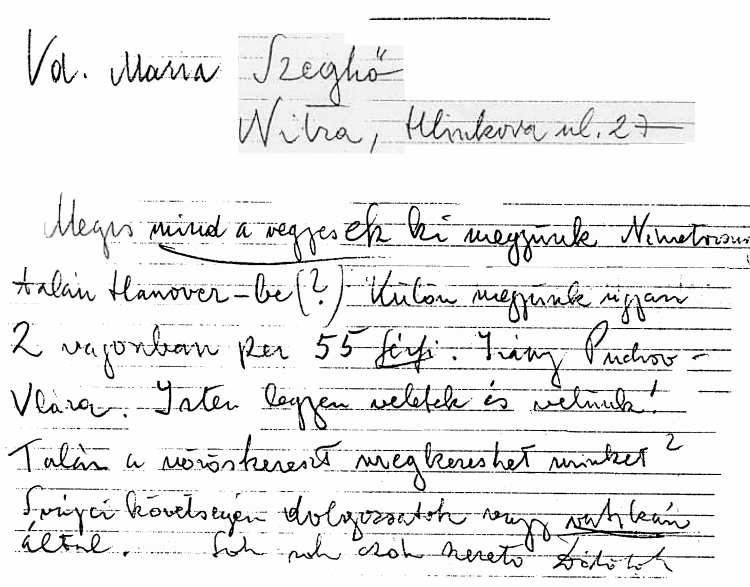 Vd. Maria Szeghő
Nitra, Hlinkova ul. 27
Megis mind a vegyesek ki megyünk Németorsz
talán Hanover-be (?) Külön megyünk ugyan
2 vagonban per 55 férfi. Irány Puchov-
Vlára. Isten legyen veletek és velünk!
Talán a vöröskereszt megkereshet minket?
Svájci követségen dolgozzatok vagy vatikán
által. Sok sok csók szerető